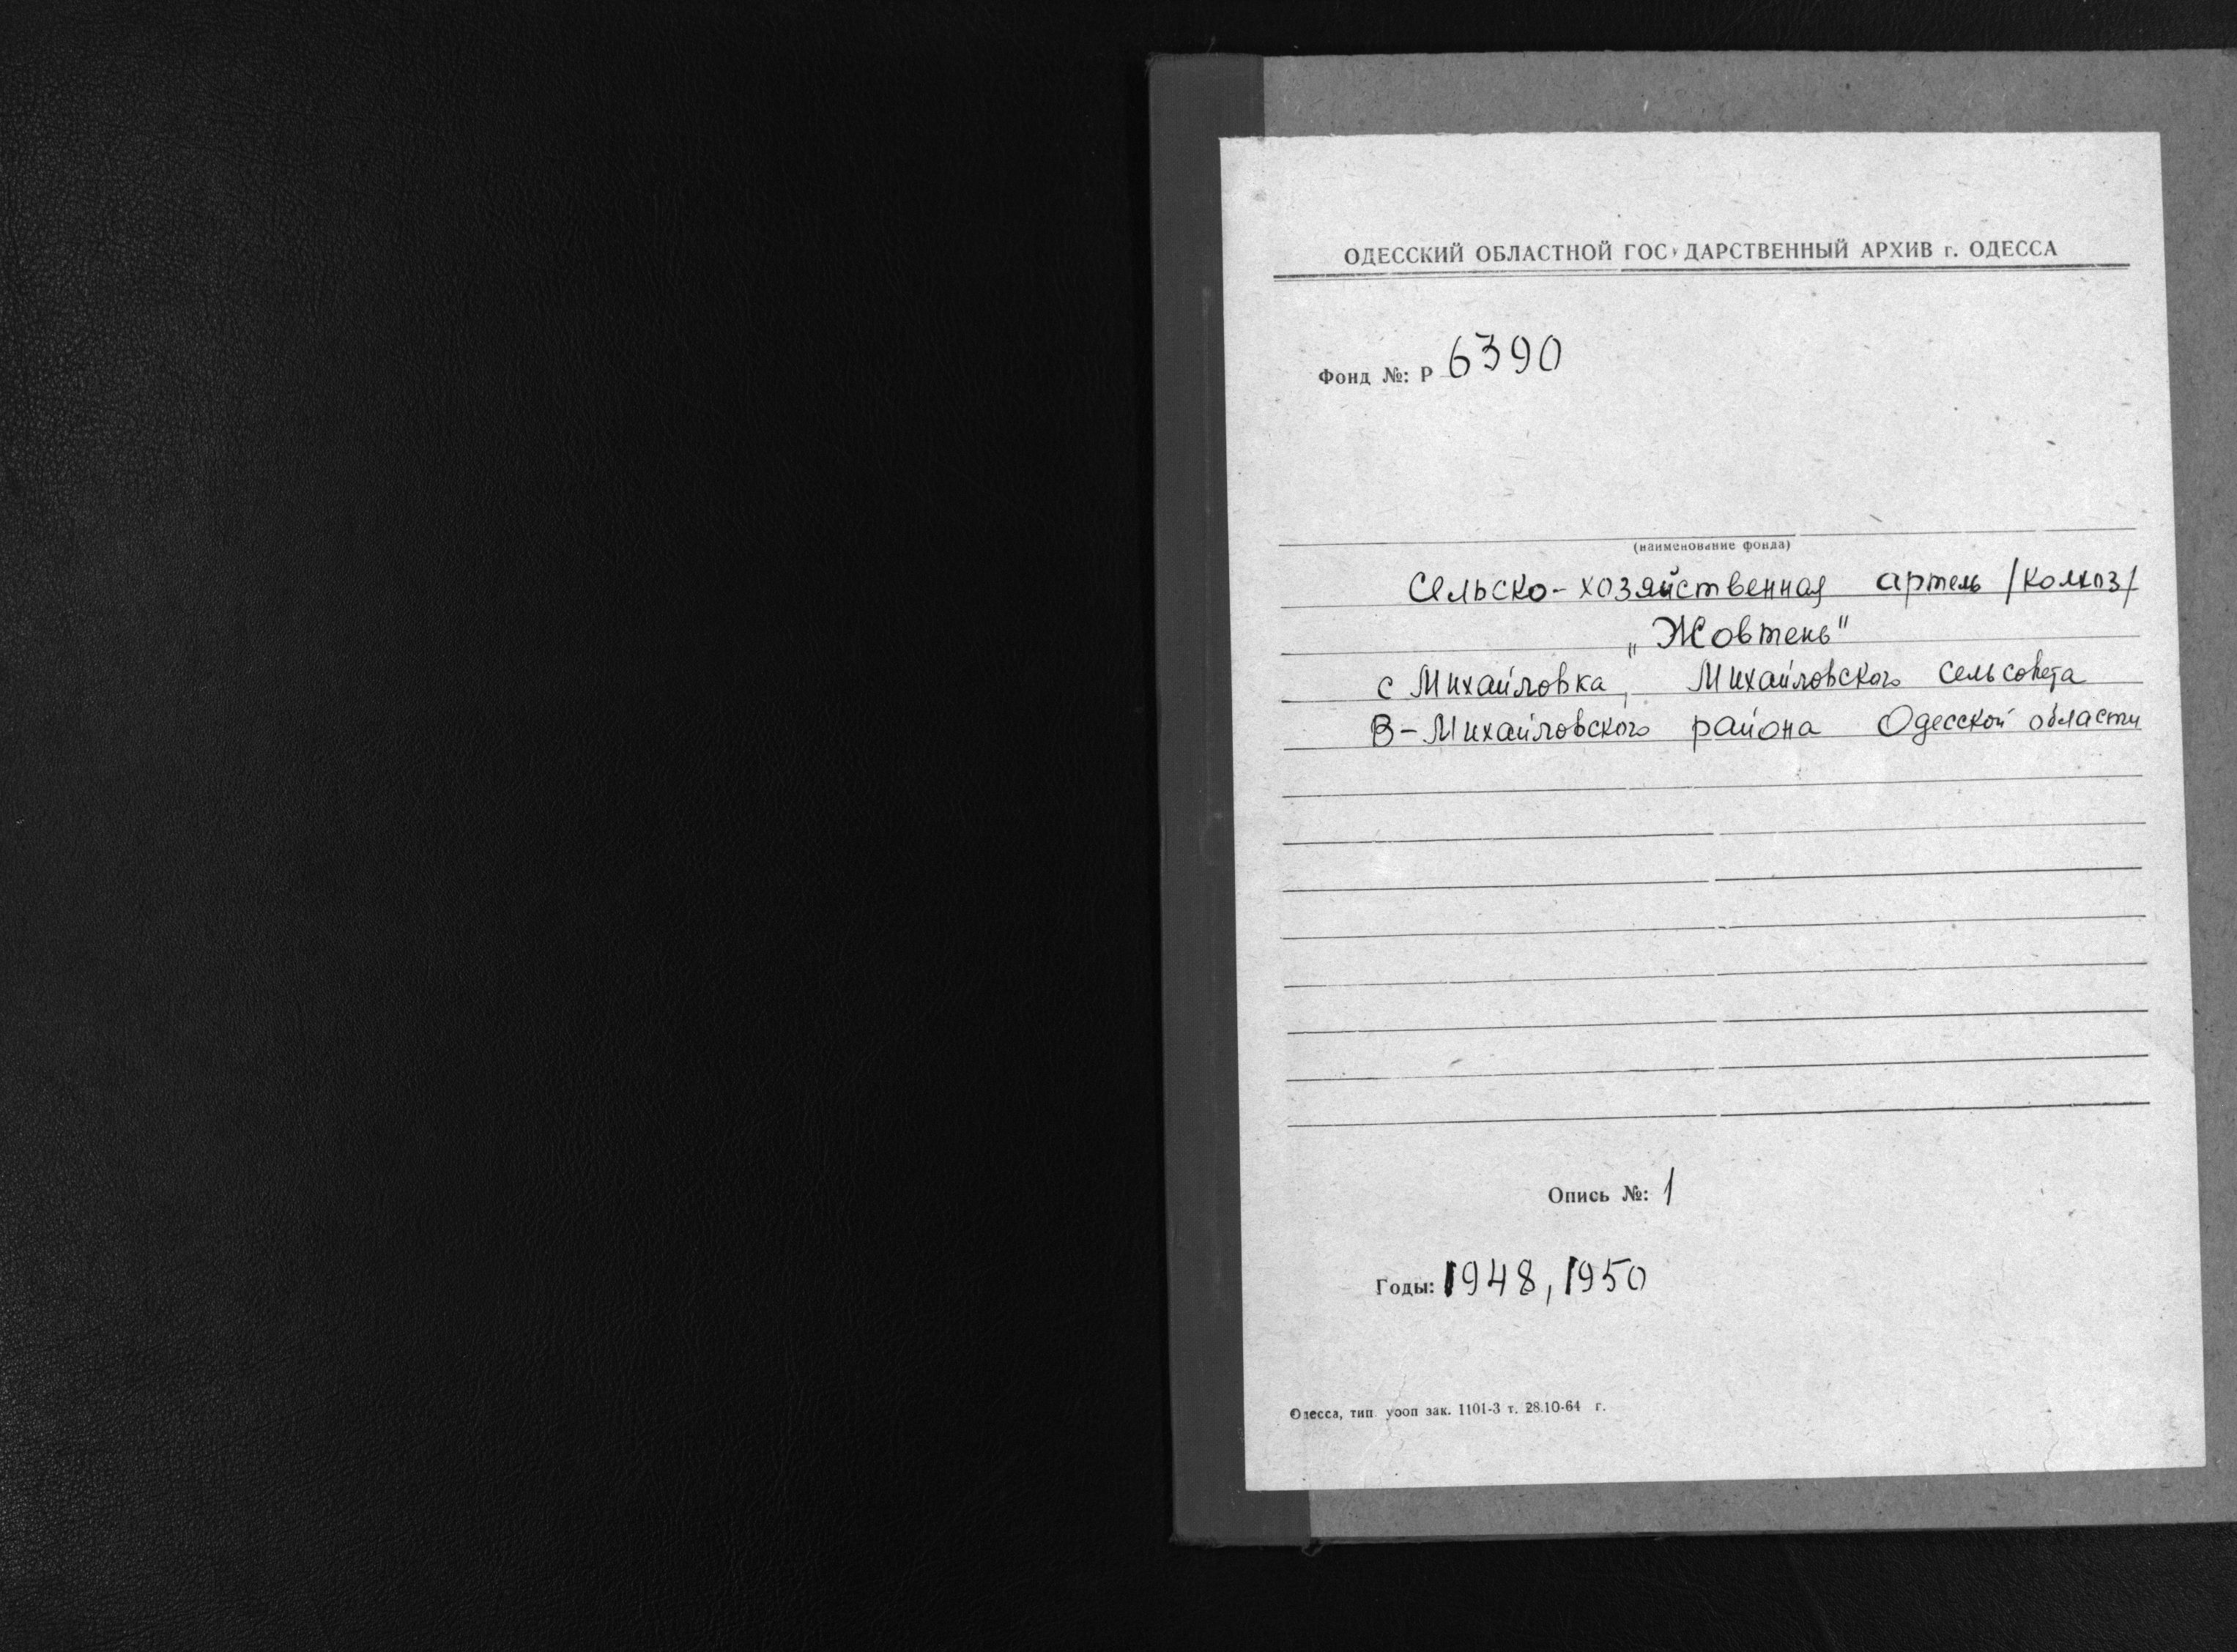 ОДЕССКИЙ ОБЛАСТНОЙ ГОСУДАРСТВЕННЫЙ АРХИВ г. ОДЕССА
Фонд №: Р 6390
(наименование фонда)
Сельско-хозяйственная артель /колхоз/
„Жовтень"
с Михайловка, Михайловского сельсовета
В-Михайловского района Одесской области
Опись №: 1
Годы: 1948, 1950
Одесса, тип. уооп зак. 1101-3 т. 28.10-64 г.